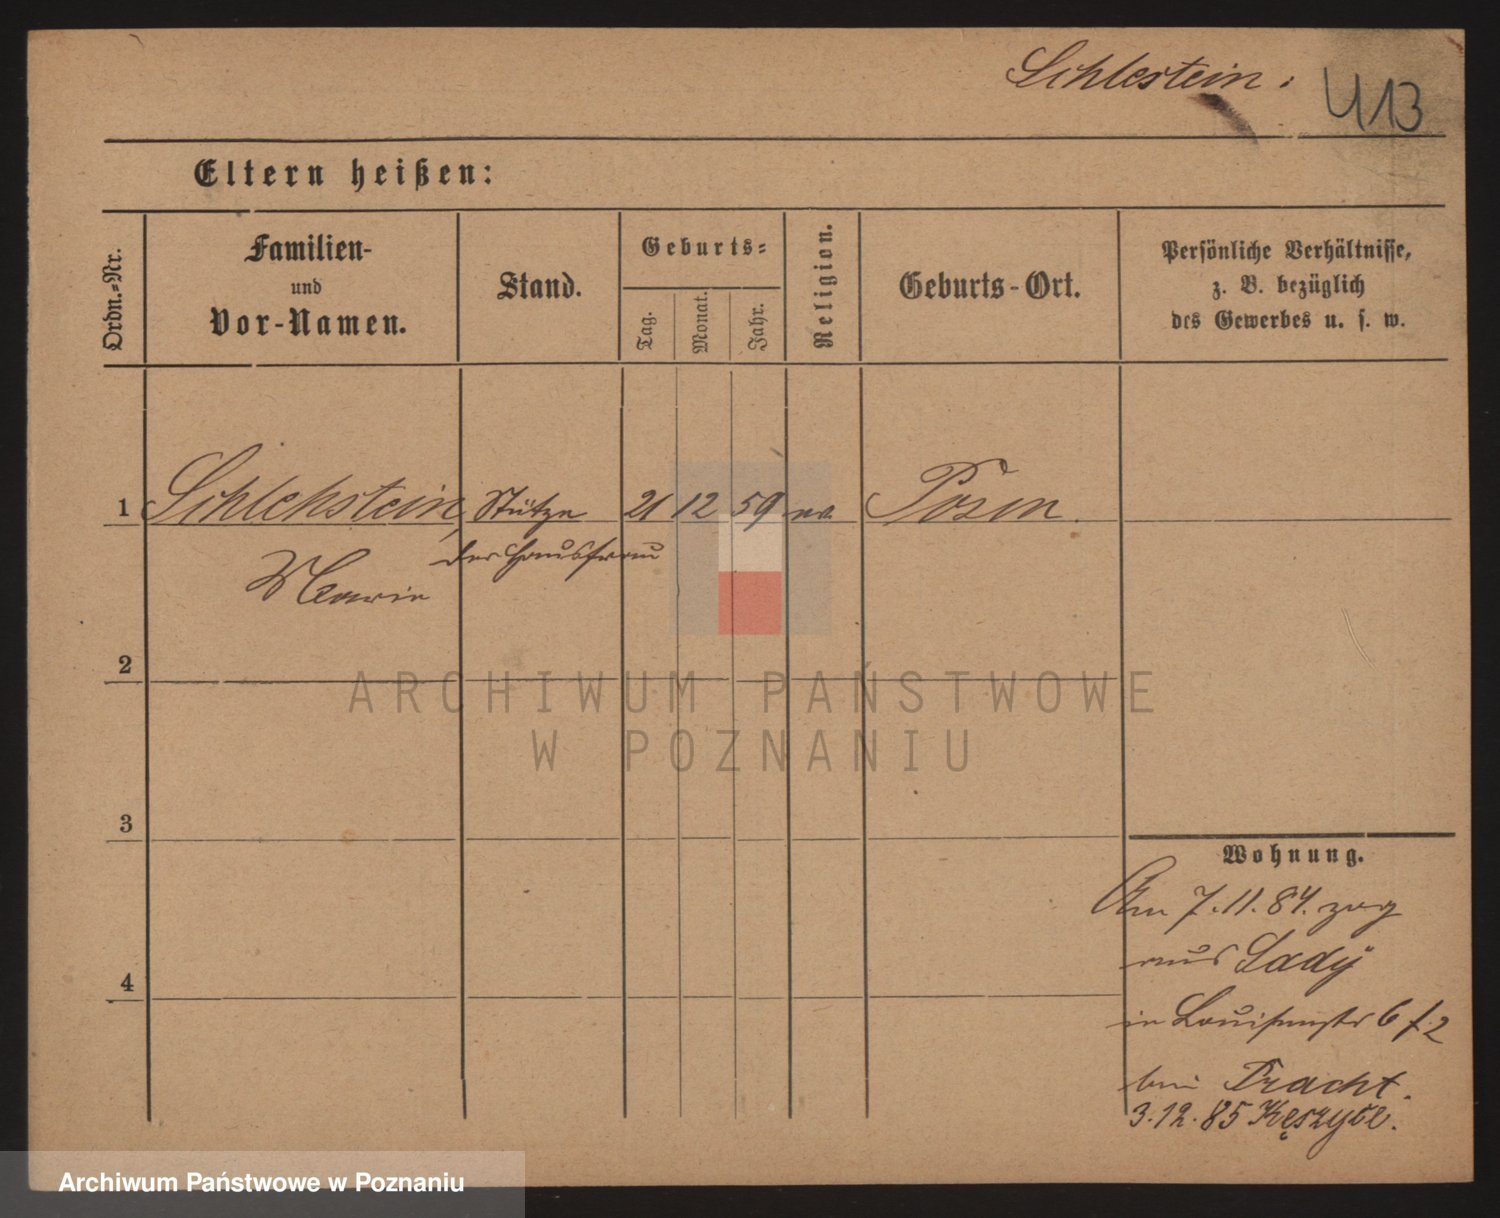 Schlestein.
413
Eltern heißen:
Ordn.=Nr.
Familien-
und
Vor-Namen.
Stand.
Geburts=
Tag.
Monat.
Jahr.
Religion.
Geburts-Ort.
Persönliche Verhältnisse,
z. B. bezüglich
des Gewerbes u. s. w.
1 Schlehstein, Stütze 21 12 59 ev. Posen.
der Hausfrau
Marie
2
ARCHIWUM PAŃSTWOWE
W POZNANIU
3
Wohnung.
Am 7.11.84. zog
aus Sady
4
in Louisenstr 6 f. 2
bei Tracht.
3.12.85 Kęszyce.
Archiwum Państwowe w Poznaniu